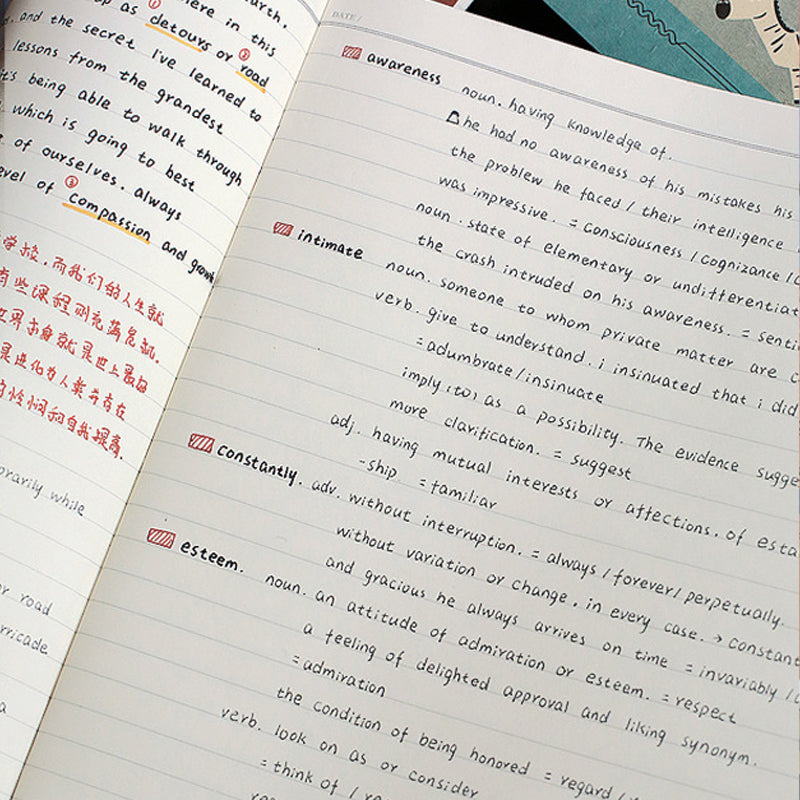 here in this
up as ① detours or ② road
and the secret I've learned to
lessons from the grandest
it's being able to walk through
which is going to best
of ourselves. always
level of ③ compassion and growth
学校,而我们的人生就
有些课程则充满
世界本身就是世上最
是进化为人类并存在
怜悯和自我提高.
while
or road
DATE /
awareness noun. having knowledge of.
he had no awareness of his mistakes his
the problew he faced / their intelligence
was impressive. = consciousness / cognizance /
noun. state of elementary or undifferentiat
the crash intruded on his awareness. = senti
intimate noun. someone to whom private matter are c
verb. give to understand. i insinuated that i did
= adumbrate / insinuate
imply (to) as a possibility. The evidence sugge
more clarification. = suggest
adj. having mutual interests or affections. of esta
-ship = familiar
constantly. adv. without interruption. = always / forever / perpetually.
without variation or change, in every case. → constant
and gracious he always arrives on time = invariably /
esteem. noun. an attitude of admiration or esteem. = respect
a feeling of delighted approval and liking synonym.
= admiration
the condition of being honored = regard /
verb. look on as or consider
= think of /